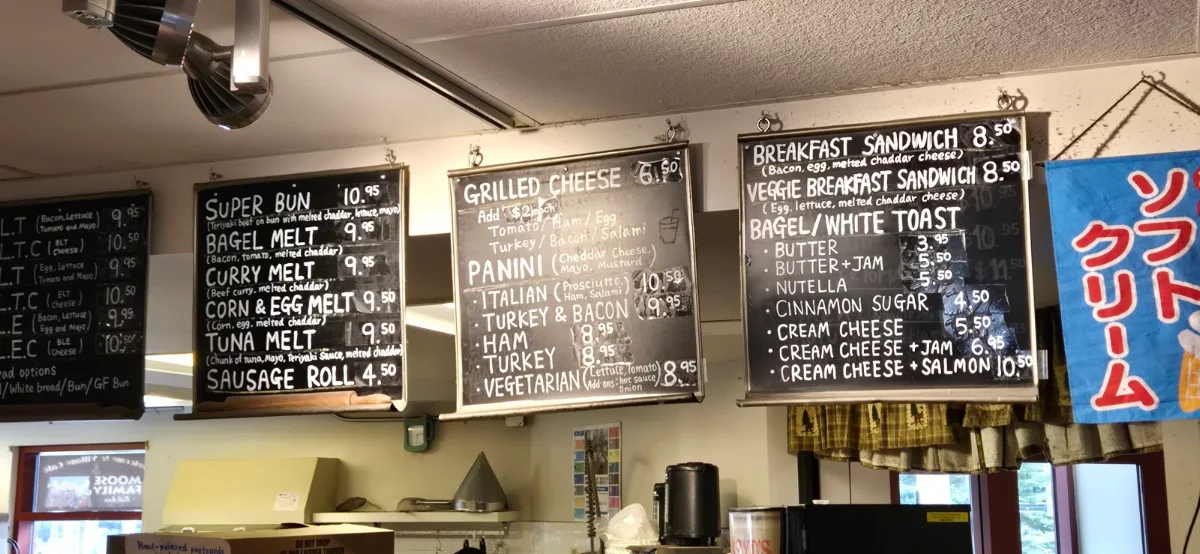 L.T (Bacon, Lettuce 9.95
Tomato and Mayo)
L.T.C (BLT 10.50
Cheese)
LT (Egg, Lettuce 9.95
Tomato and Mayo)
T.C (ELT 10.50
Cheese)
L.E (Bacon, Lettuce 9.95
Egg and Mayo)
L.E.C (BLE 10.50
Cheese)
ad options
l/White bread/Bun/GF Bun
SUPER BUN 10.95
(Teriyaki beef on bun with melted chaddar, lettuce, mayo)
BAGEL MELT 9.95
(Bacon, tomato, melted chaddar)
CURRY MELT 9.95
(Beef curry, melted chaddar)
CORN & EGG MELT 9.50
(Corn, egg, melted chaddar)
TUNA MELT 9.50
(Chunk of tuna, Mayo, Teriyaki Sauce, melted chaddar)
SAUSAGE ROLL 4.50
GRILLED CHEESE 6.50
Add $2 each
Tomato / Ham / Egg
Turkey / Bacon / Salami
PANINI (Cheddar Cheese,
Mayo, Mustard)
• ITALIAN (Prosciutto, 10.50
Ham, Salami)
• TURKEY & BACON 9.95
• HAM 8.95
• TURKEY 8.95
• VEGETARIAN (Lettuce, Tomato) 8.95
Add ons: hot sauce
Onion
BREAKFAST SANDWICH 8.50
(Bacon, egg, melted chaddar cheese)
VEGGIE BREAKFAST SANDWICH 8.50
(Egg, lettuce, melted chaddar cheese)
BAGEL/WHITE TOAST
• BUTTER 3.95
• BUTTER + JAM 5.50
• NUTELLA 5.50
• CINNAMON SUGAR 4.50
• CREAM CHEESE 5.50
• CREAM CHEESE + JAM 6.95
• CREAM CHEESE + SALMON 10.50
ソフト
クリーム
MOOSE
FAMILY
Kitchen
DO NOT DROP